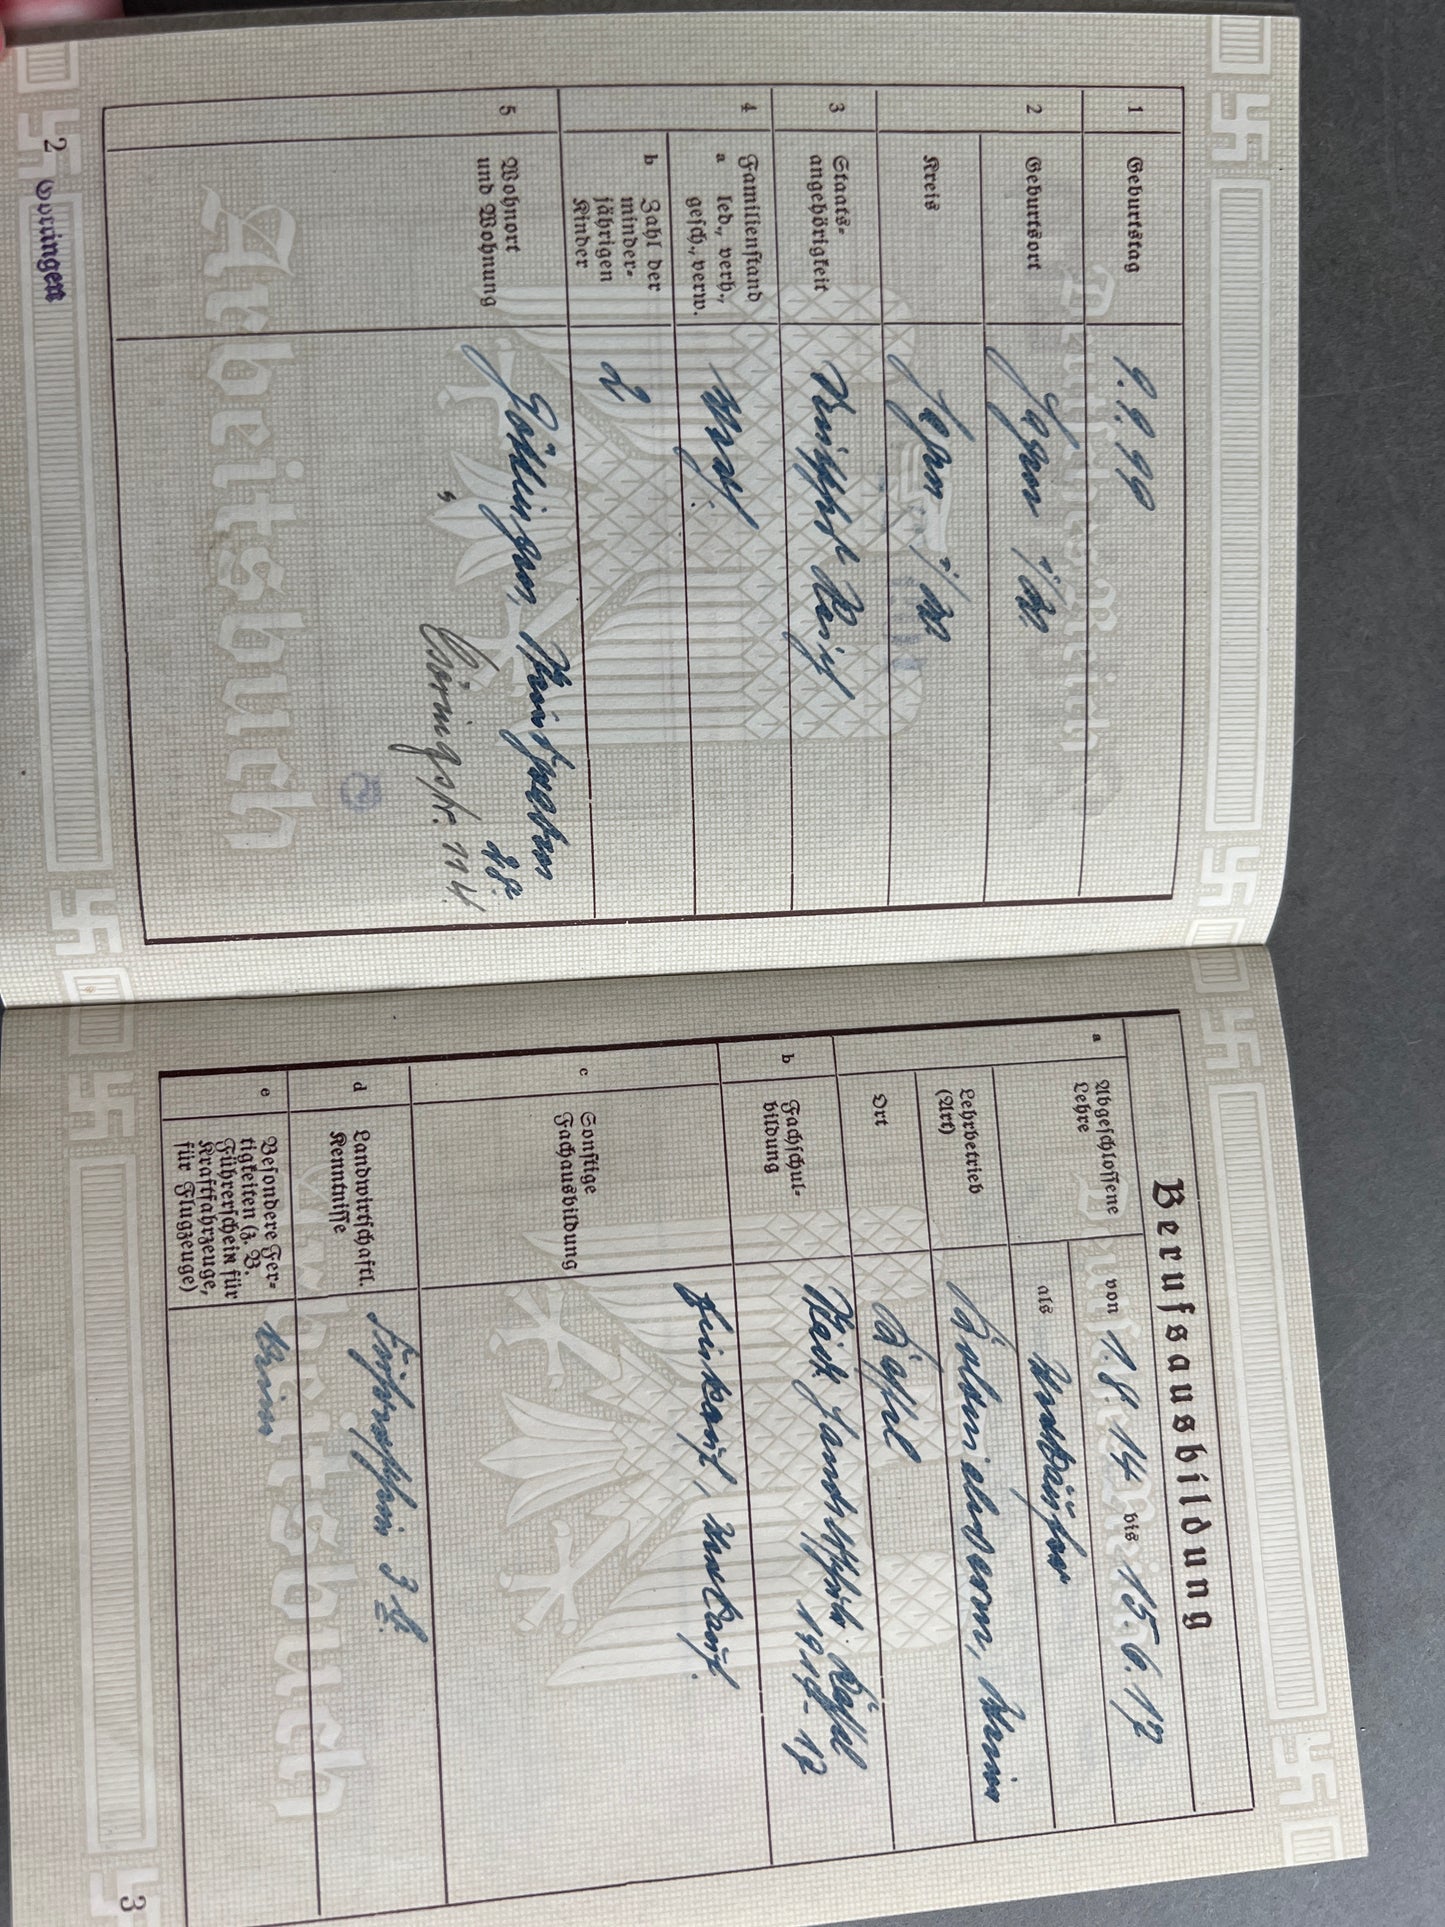 1 Geburtstag 9.9.99
2 Geburtsort
Kreis
3 Staats-
angehörigkeit Deutsches Reich
4 Familienstand
a led., verh.,
gesch., verw. verh.
b Zahl der
minder-
jährigen
Kinder 2
5 Wohnort
und Wohnung Göttingen,
28.
Arbeitsbuch
2
Berufsausbildung
a Abgeschlossene
Lehre von 1.8.14 bis 15.6.17
als Verkäufer
Lehrbetrieb
(Art) Kolonialwaren, Weine
Ort Kassel
b Fachschul-
bildung Städt. Handelsschule Kassel
1914-17
c Sonstige
Fachausbildung Einkauf, Verkauf.
d Landwirtschaftl.
Kenntnisse Führerschein 3 b.
e Besondere Fer-
tigkeiten (z. B.
Führerschein für
Kraftfahrzeuge,
für Flugzeuge) keine
Arbeitsbuch
3